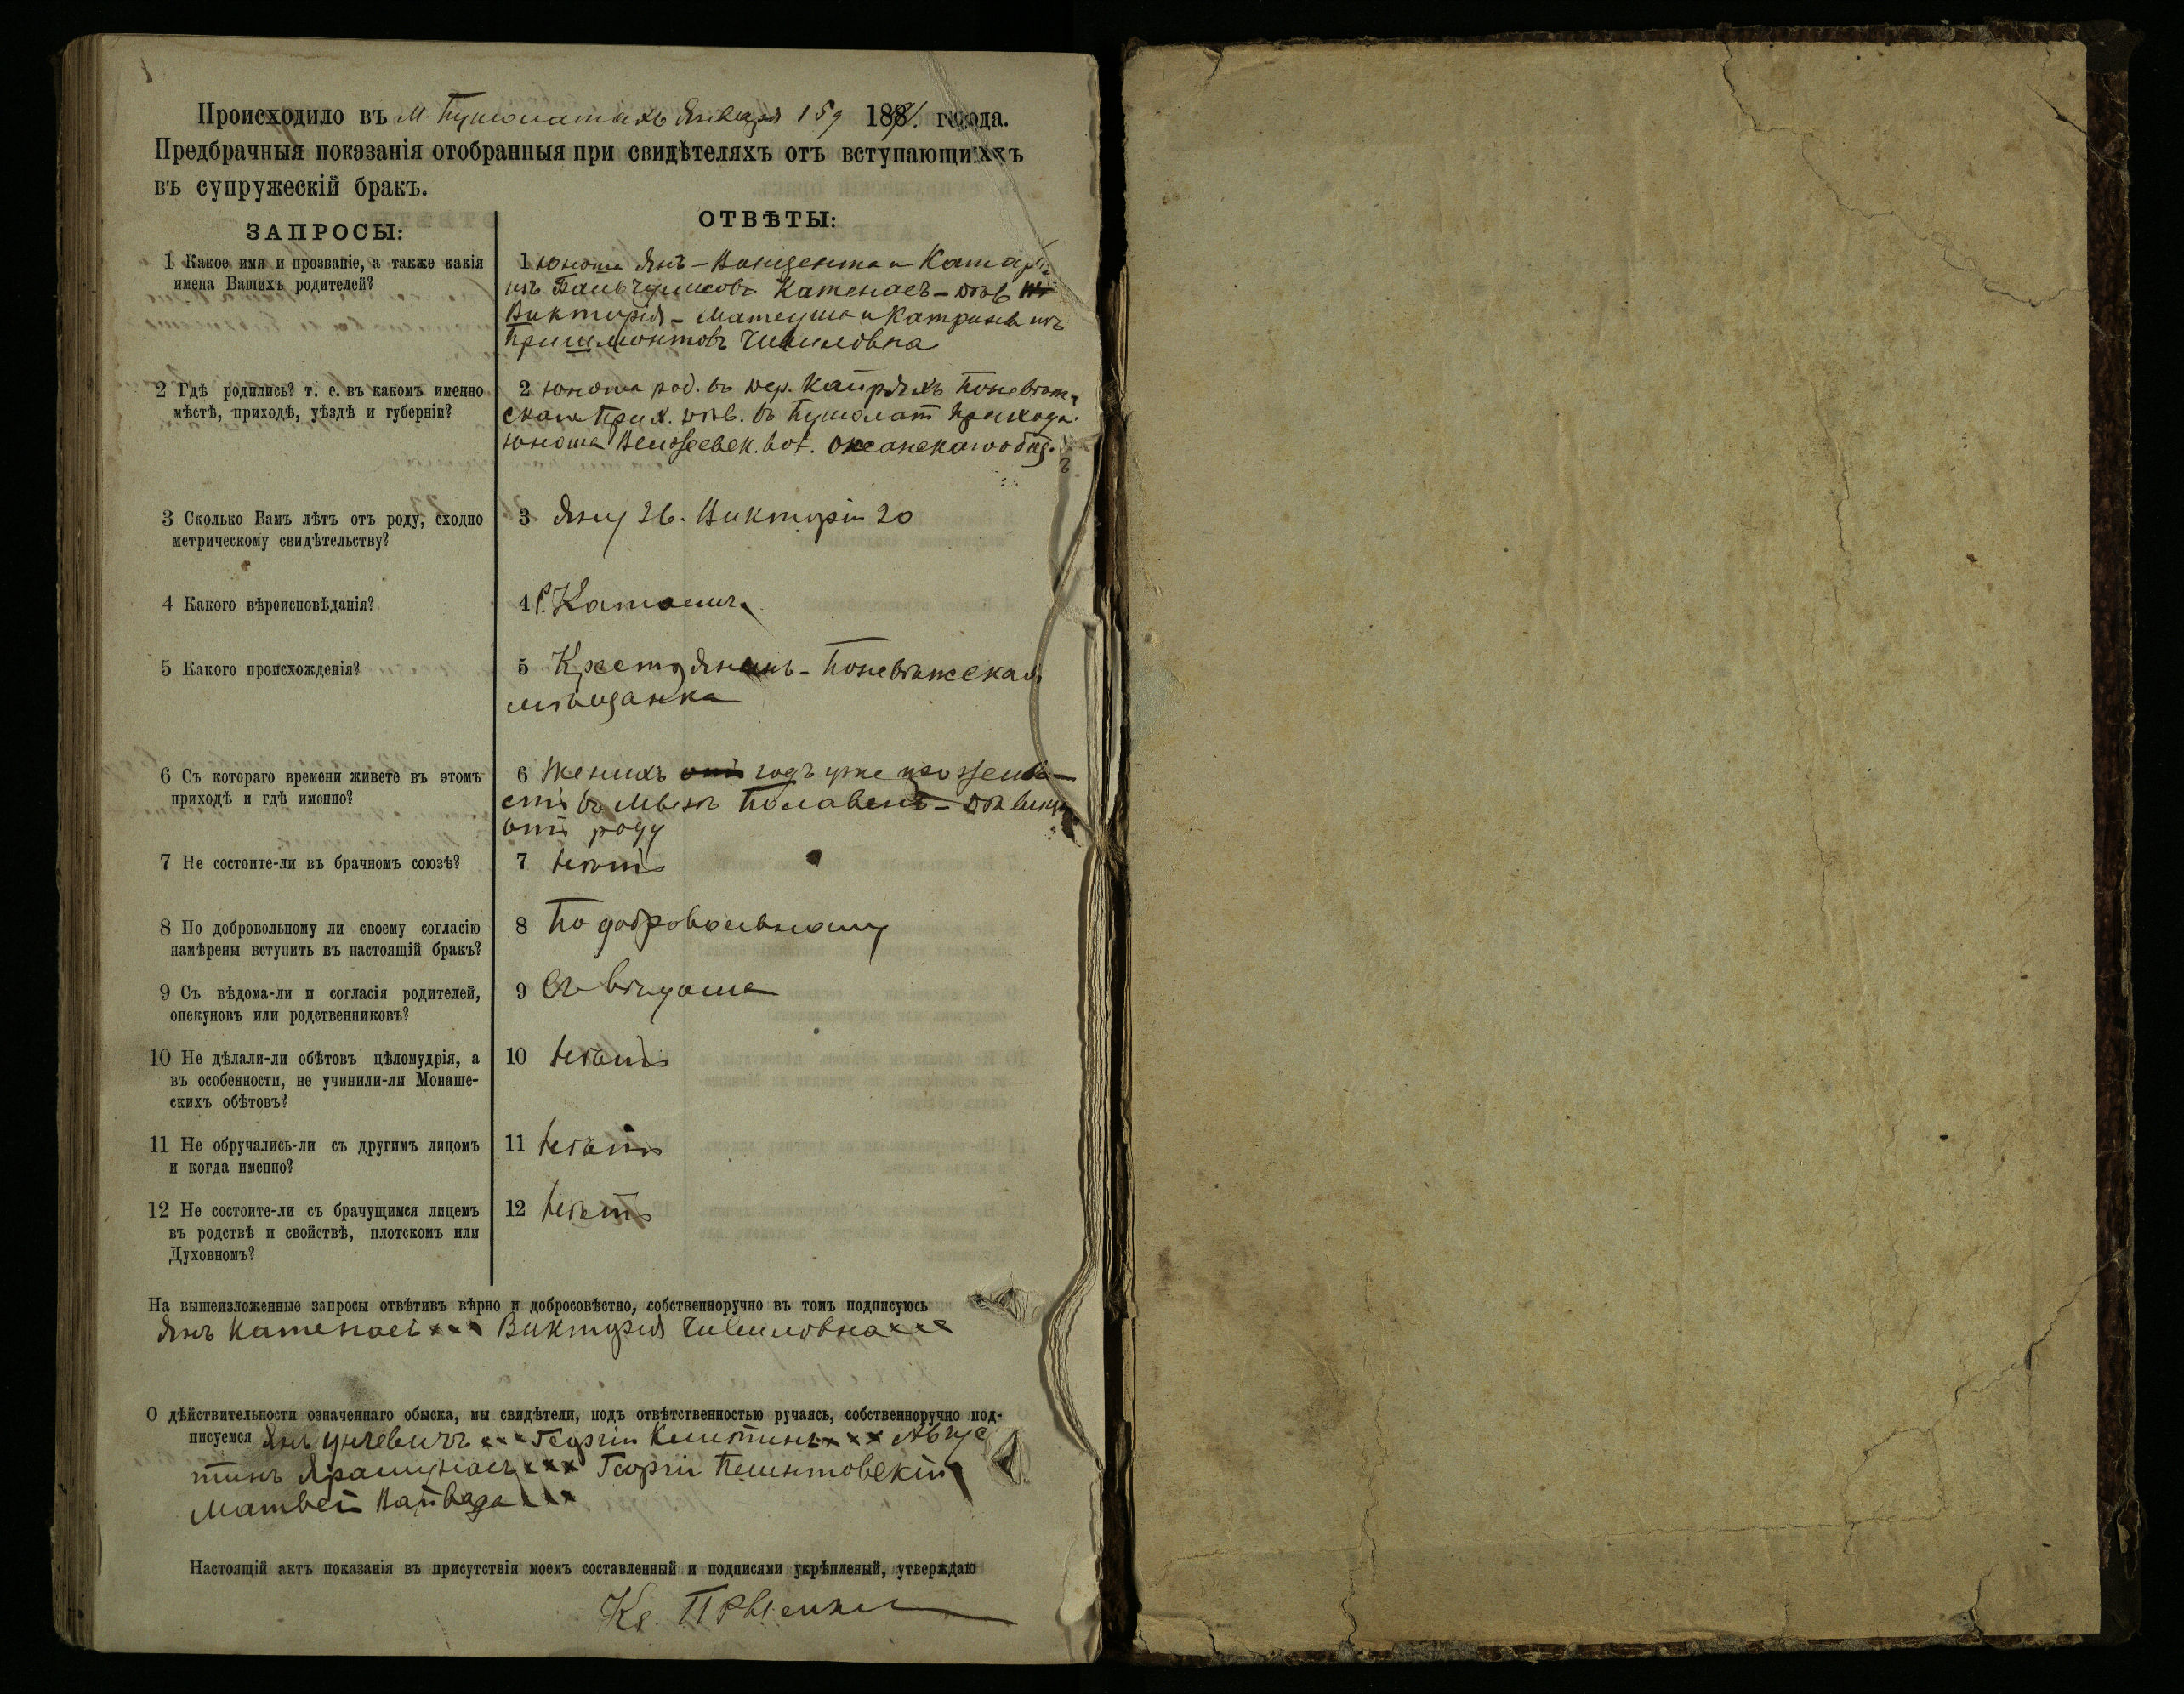 Происходило въ м. Пушолатахъ Января 15 д 188 . года.
Предбрачныя показанія отобранныя при свидѣтеляхъ отъ вступающихъ
въ супружескій бракъ.
ЗАПРОСЫ:
ОТВѢТЫ:
1 Какое имя и прозваніе, а также какія
имена Вашихъ родителей?
1 юноша Янъ – Винцента и Катар.
изъ Катенасъ – дѣв
Викторія – Матеуша и Катрины изъ
Пришмонтовъ
2 Гдѣ родились? т. е. въ какомъ именно
мѣстѣ, приходѣ, уѣздѣ и губерніи?
2 юноша род. въ дер. Поневѣж
скаго прих. дѣв. въ Пушолат приходѣ.
юноша вол. общ.
3 Сколько Вамъ лѣтъ отъ роду, сходно
метрическому свидѣтельству?
3 Яну 26. Викторіи 20
4 Какого вѣроисповѣданія?
4 Р. Католич.
5 Какого происхожденія?
5 Крестьянинъ – Поневѣжская
мѣщанка
6 Съ котораго времени живете въ этомъ
приходѣ и гдѣ именно?
6 Женихъ годъ уже
въ – дѣвица
отъ роду
7 Не состоите-ли въ брачномъ союзѣ?
7 Нѣтъ
8 По добровольному ли своему согласію
намѣрены вступить въ настоящій бракъ?
8 По добровольному
9 Съ вѣдома-ли и согласія родителей,
опекуновъ или родственниковъ?
9 Съ вѣдома
10 Не дѣлали-ли обѣтовъ цѣломудрія, а
въ особенности, не учинили-ли Монаше-
скихъ обѣтовъ?
10 Нѣтъ
11 Не обручались-ли съ другимъ лицомъ
и когда именно?
11 Нѣтъ
12 Не состоите-ли съ брачущимся лицемъ
въ родствѣ и свойствѣ, плотскомъ или
Духовномъ?
12 Нѣтъ
На вышеизложенные запросы отвѣтивъ вѣрно и добросовѣстно, собственноручно въ томъ подписуюсь
Янъ Катенасъ xxx Викторія xxx
О дѣйствительности означеннаго обыска, мы свидѣтели, подъ отвѣтственностью ручаясь, собственноручно под-
писуемся Янъ xxx Георгій xxx Авгус
тинъ xxx Георгій
Матвей xxx
Настоящій актъ показанія въ присутствіи моемъ составленный и подписями укрѣпленый, утверждаю
Кс.